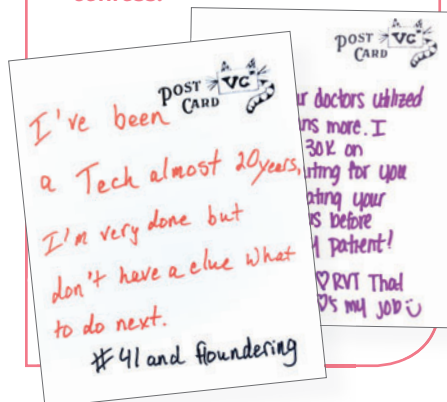 confess!
POST CARD VC
I've been
a Tech almost 20 years.
I'm very done but
don't have a clue what
to do next.
#41 and floundering
POST CARD VC
ur doctors utilized
ns more. I
30K on
rting for you
ating your
s before
patient!
♡RVT That
♡'s my job